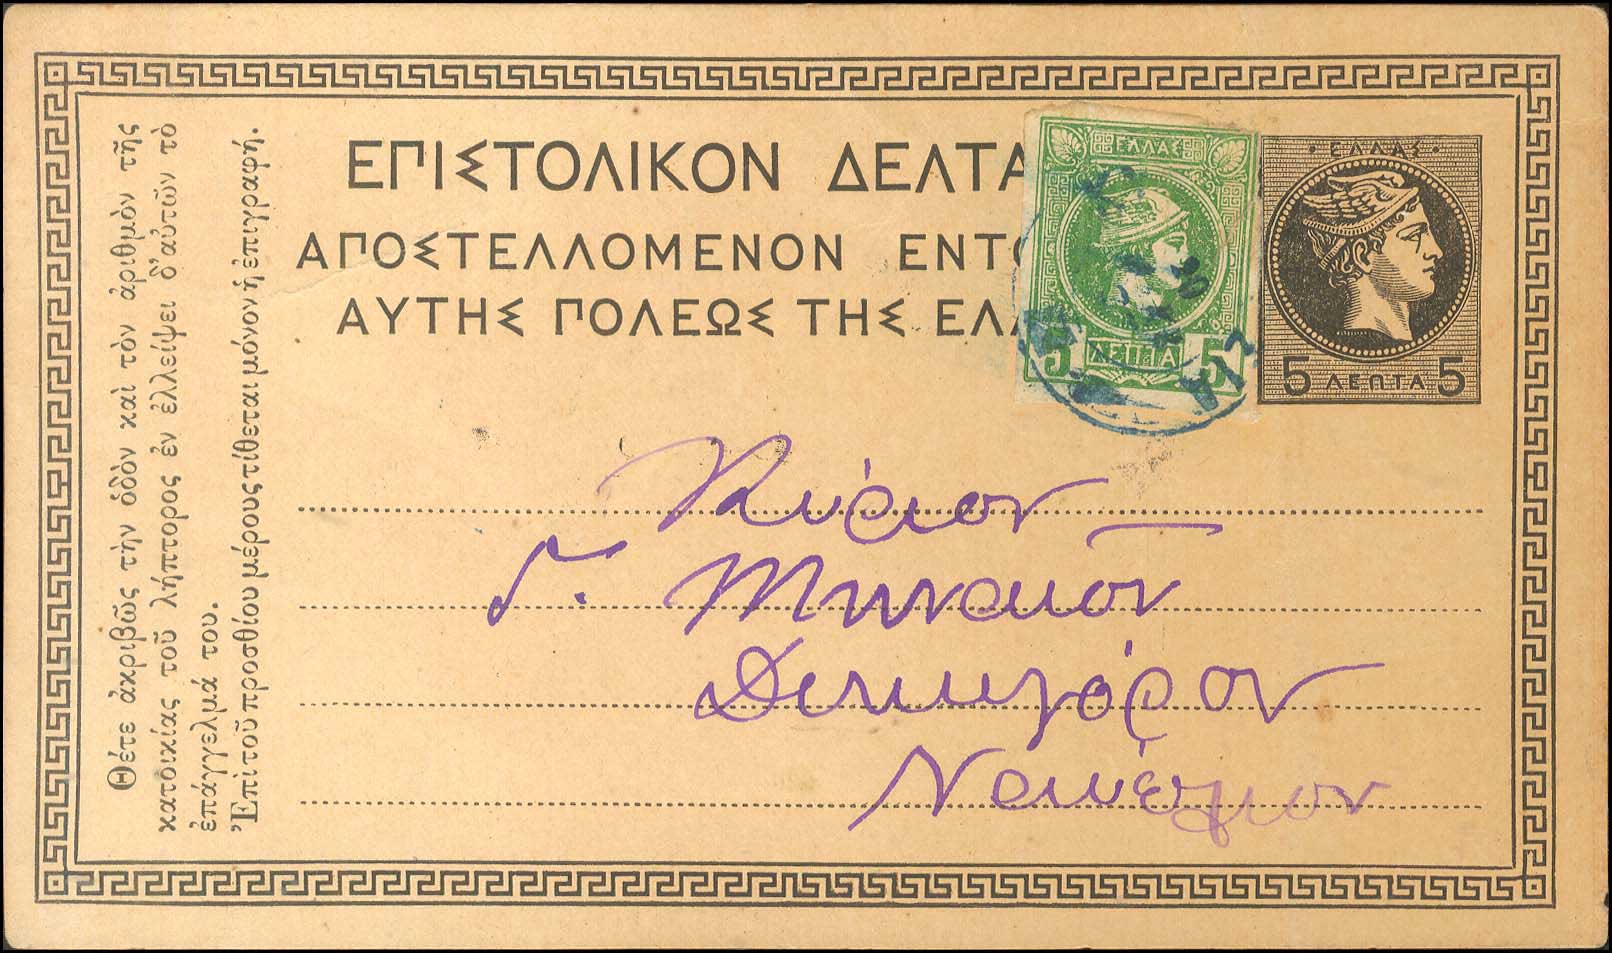 ΕΠΙΣΤΟΛΙΚΟΝ ΔΕΛΤΑ
ΑΠΟΣΤΕΛΛΟΜΕΝΟΝ ΕΝΤΟ
ΑΥΤΗΣ ΠΟΛΕΩΣ ΤΗΣ ΕΛΛ
ΕΛΛΑΣ
5 ΛΕΠΤΑ 5
ΕΛΛΑΣ
5 ΛΕΠΤΑ 5
Κύριον
Δικηγόρον
Ναύπλιον
Θέτε ἀκριβῶς τὴν ὁδὸν καὶ τὸν ἀριθμὸν τῆς
κατοικίας τοῦ λήπτορος ἐν ἐλλείψει δ'αὐτῶν τὸ
ἐπάγγελμά του.
Ἐπὶ τοῦ προσθίου μέρους τίθεται μόνον ἡ ἐπιγραφή.